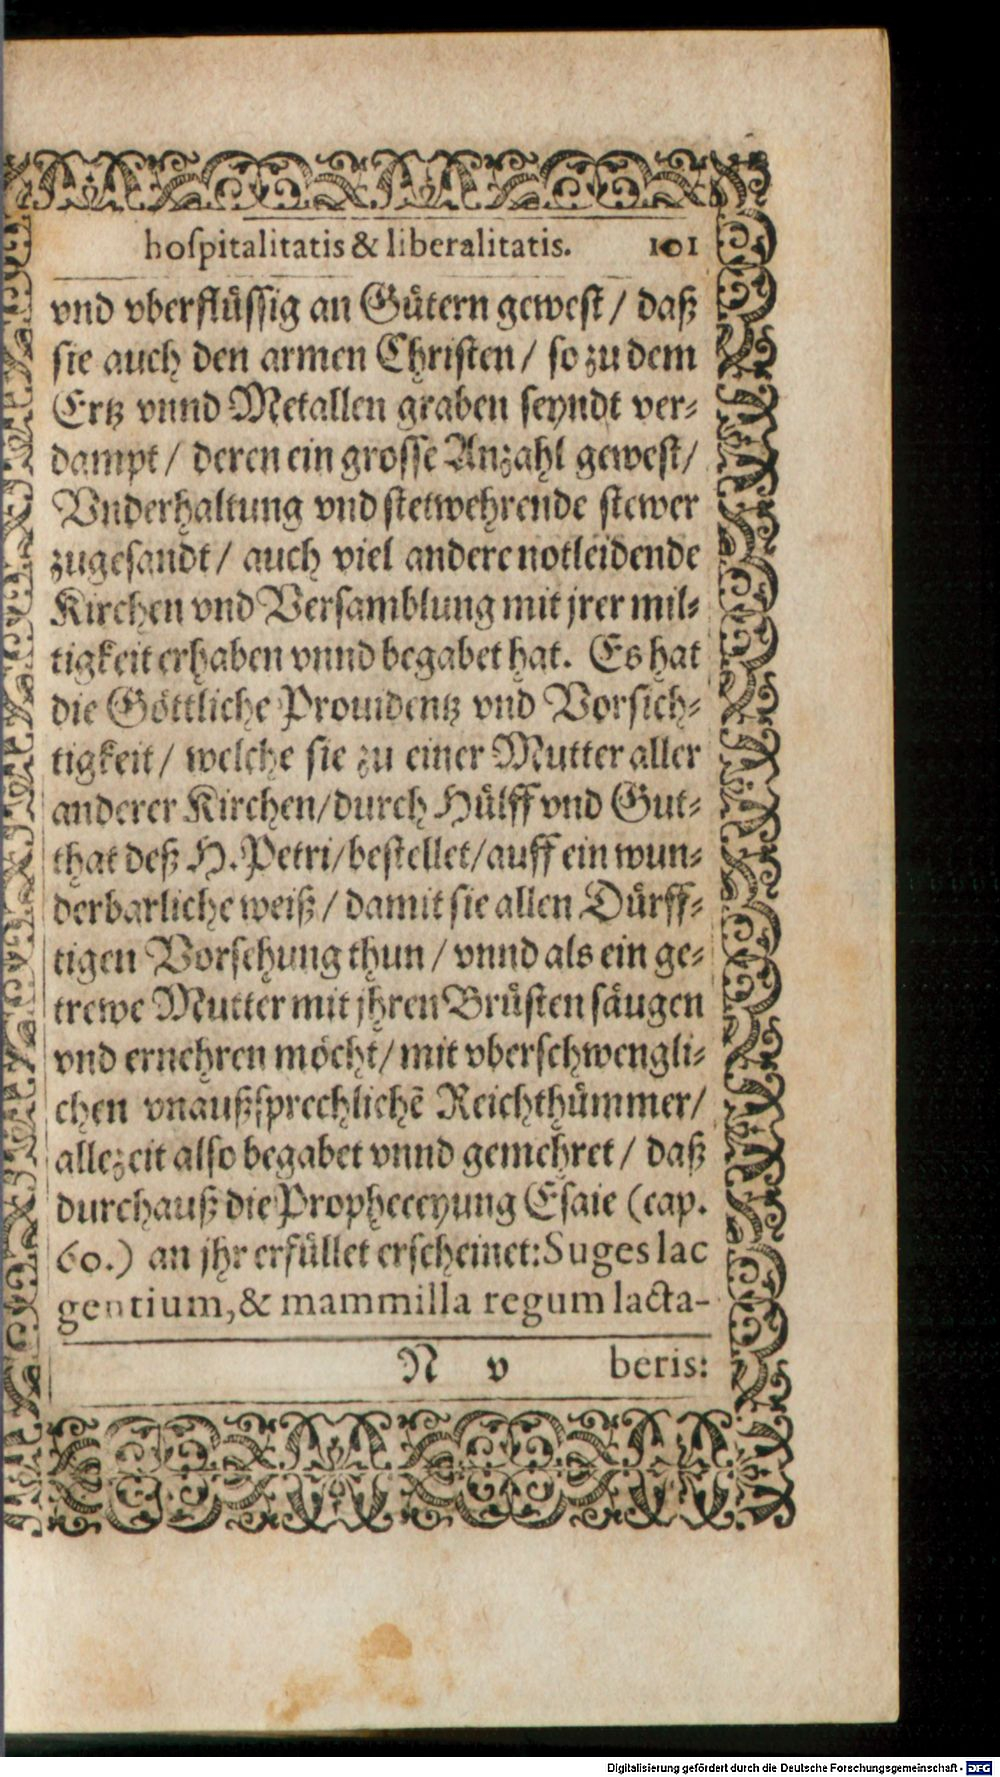 hoſpitalitatis & liberalitatis. 101
vnd vberflüſſig an Gütern geweſt / daß
ſie auch den armen Chriſten / ſo zu dem
Ertz vnnd Metallen graben ſeyndt ver⸗
dampt / deren ein groſſe Anzahl geweſt /
Vnderhaltung vnd ſtetwehrende ſtewer
zugeſandt / auch viel andere notleidende
Kirchen vnd Verſamblung mit jrer mil⸗
tigkeit erhaben vnnd begabet hat. Es hat
die Göttliche Prouidentz vnd Vorſich⸗
tigkeit / welche ſie zu einer Mutter aller
anderer Kirchen / durch Hülff vnd Gut⸗
that deß H. Petri / beſtellet / auff ein wun⸗
derbarliche weiß / damit ſie allen Dürff⸗
tigen Vorſehung thun / vnnd als ein ge⸗
trewe Mutter mit jhren Brüſten ſäugen
vnd ernehren möcht / mit vberſchwengli⸗
chen vnaußſprechlichẽ Reichthümmer /
allezeit alſo begabet vnnd gemehret / daß
durchauß die Propheceyung Eſaie (cap.
60.) an jhr erfüllet erſcheinet: Suges lac
gentium, & mammilla regum lacta-
N v beris:
Digitalisierung gefördert durch die Deutsche Forschungsgemeinschaft - DFG